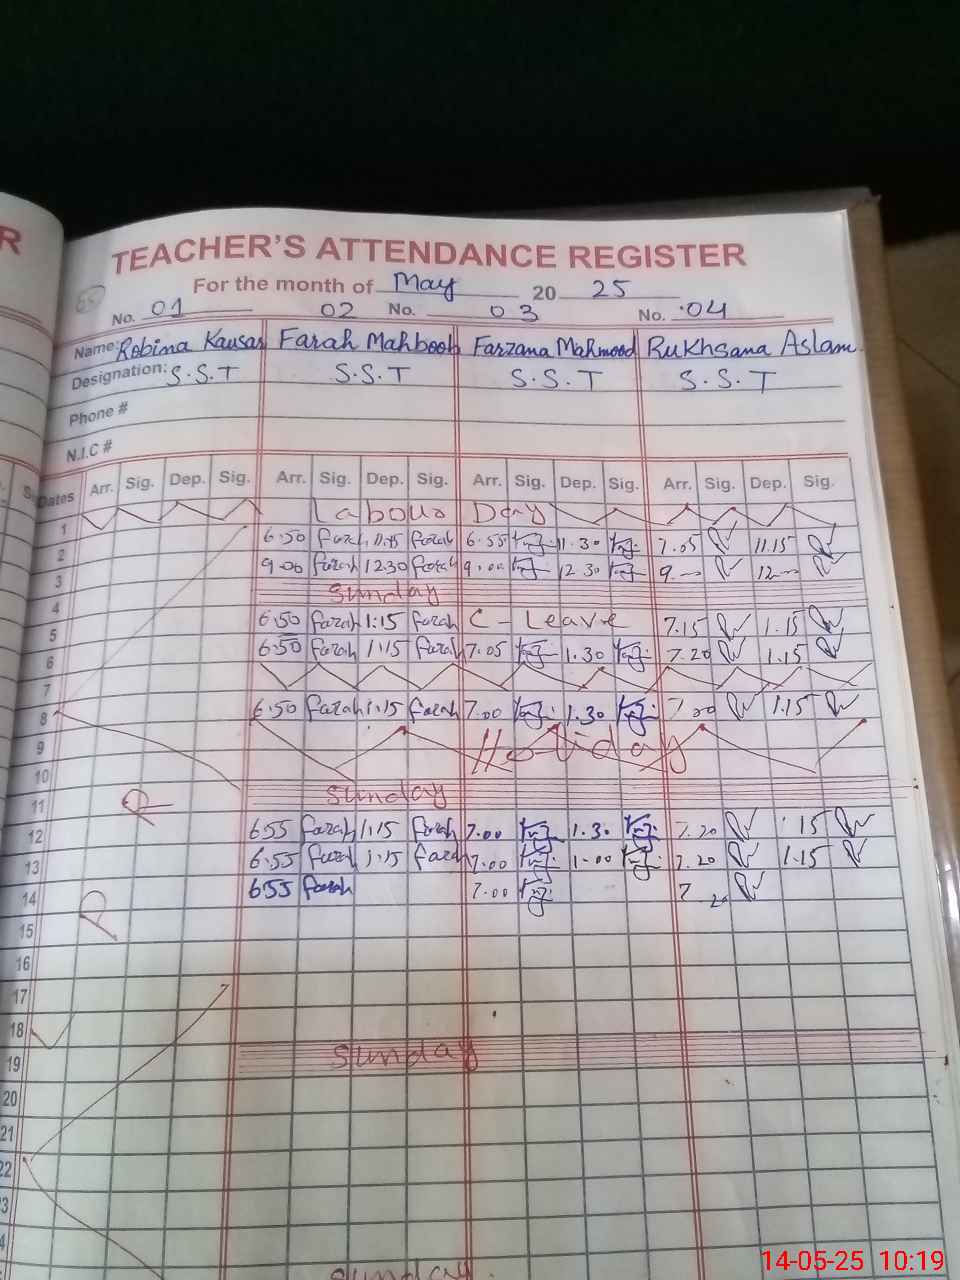 R
TEACHER'S ATTENDANCE REGISTER
For the month of May 20 25
No. 01 02 No. 03 No. 04
Name: Robina Kausar Farah Mahboob Farzana Mahmood Rukhsana Aslam
Designation: S.S.T S.S.T S.S.T S.S.T
Phone #
N.I.C #
Dates Arr. Sig. Dep. Sig. Arr. Sig. Dep. Sig. Arr. Sig. Dep. Sig. Arr. Sig. Dep. Sig.
1 Labour Day
2 6.50 farah 11.15 farah 6.55 11.30 7.05 11.15
3 9.00 farah 12.30 farah 9.00 12.30 9.— 12—
4 Sunday
5 6.50 farah 1:15 farah C-Leave 7.15 1.15
6 6.50 farah 1.15 farah 7.05 1.30 7.20 1.15
7
8 6.50 farah 1.15 farah 7.00 1.30 7.00 1.15
9 Holiday
10
11 Sunday
12 6.55 farah 1.15 farah 7.00 1.30 7.20 1.15
13 6.55 farah 1.15 farah 7.00 1.00 7.20 1.15
14 6.55 farah 7.00 7.20
15
16
17
18 Sunday
19
20
21
22
Sunday
14-05-25 10:19